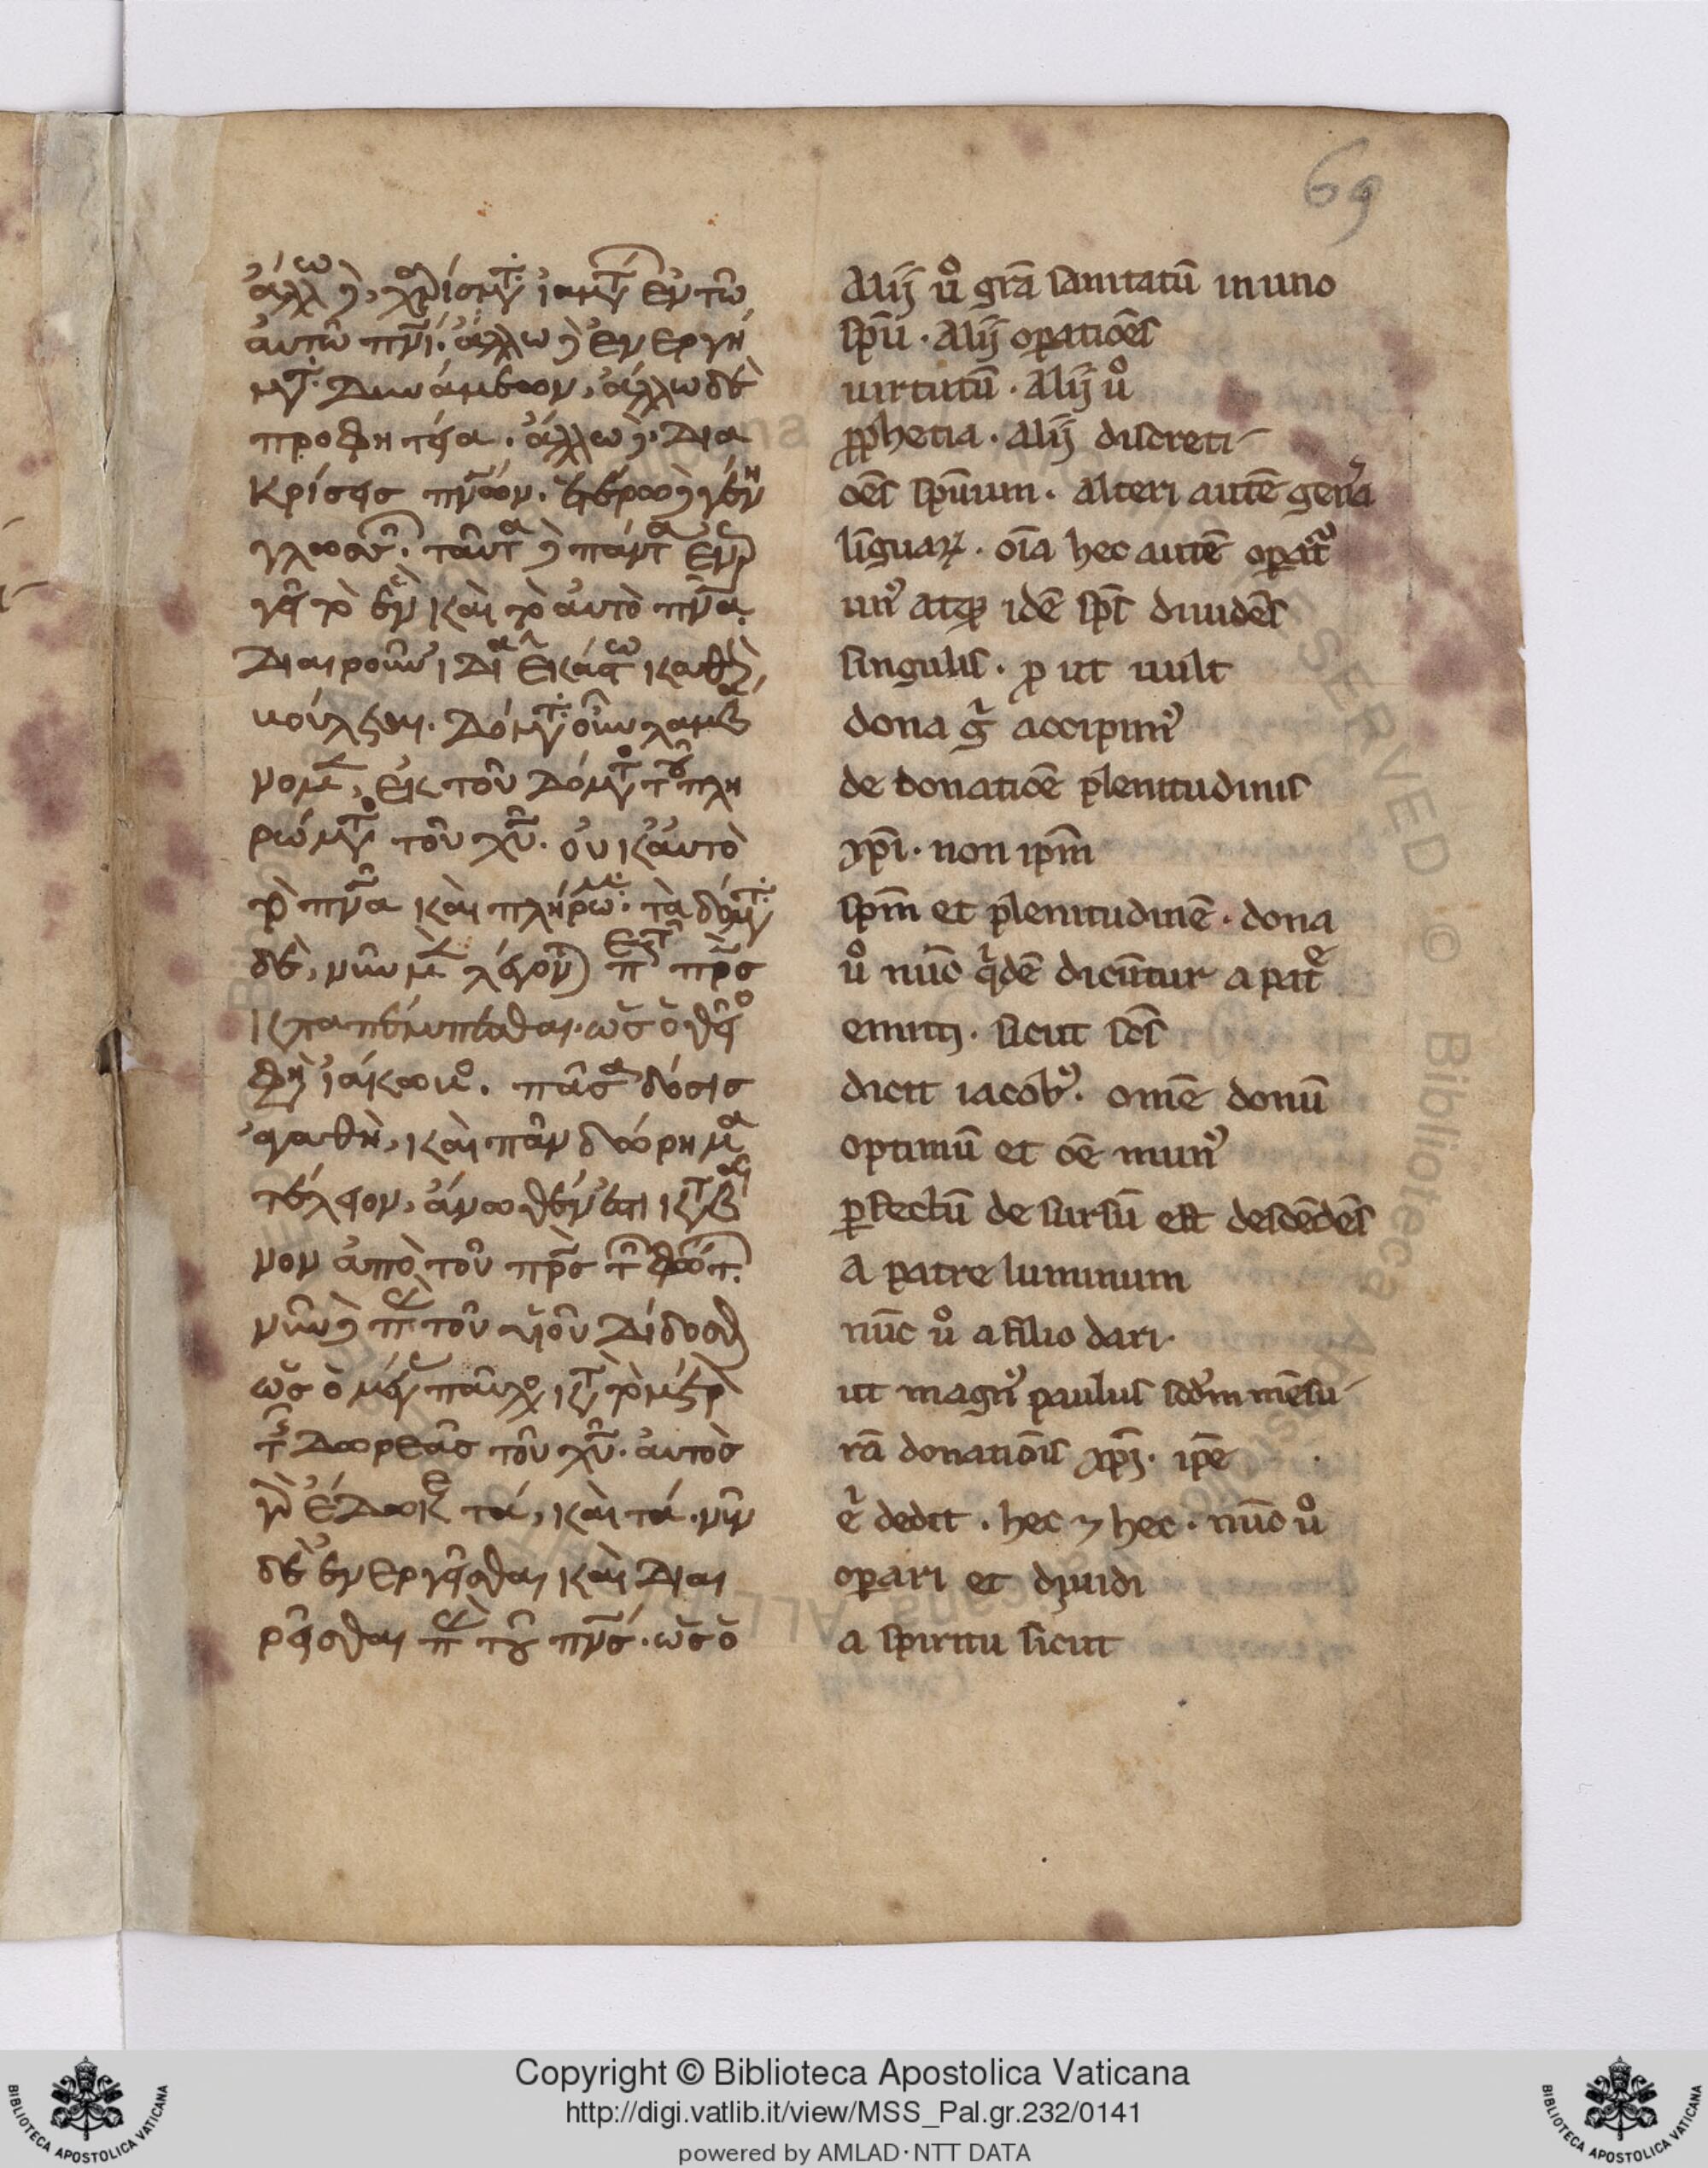 69
ἄλλω δὲ, χαρίσματα ἰαμάτων ἐν τῶ
αὐτῶ πνι. ἄλλω δὲ ἐνεργή
ματα δυνάμεων, ἄλλω δὲ
προφητεία. ἄλλω δὲ δια
κρίσεις πνων. ἑτέρω δὲ γένη
γλωσσῶν. ταῦτα δὲ πάντα ἐνερ
γεῖ τὸ ἓν καὶ τὸ αὐτὸ πνα.
διαιροῦν ἰδία ἑκάστω καθὼς
βούλεται. δόματα οὖν λαμβά
νομεν, ἐκ τοῦ δόματος τοῦ πλη
ρώματος τοῦ χυ. οὐκ αὐτὸ
τὸ πνα καὶ πλήρωμα. τὰ δόματα
δὲ, νῦν μὲν λέγονται παρὰ πρς
καταπέμπεσθαι. ὡς ὁ θεῖος
φησὶν ἰάκωβος. πᾶσα δόσις
ἀγαθὴ, καὶ πᾶν δώρημα
τέλειον, ἄνωθέν ἐστι καταβαῖ
νον ἀπὸ τοῦ πρς τῶν φώτων.
νῦν δὲ παρὰ τοῦ υἱοῦ δίδοσθαι
ὡς ὁ μέγας παῦλος κατὰ τὸ μέτρον
τῆς δωρεᾶς τοῦ χυ. αὐτὸς
γὰρ ἔδωκε τά, καὶ τά. νῦν
δὲ ἐνεργεῖσθαι καὶ διαι
ρεῖσθαι παρὰ τοῦ πνς. ὡς ὁ
Alij u° gra sanitatu in uno
spu. Alij opatioes
uirtutu. Alij u°
pphetia. Alij discreti
oes spuum. Alteri aute genera
linguaꝝ. oia hec aute opatur
un᾿ atqꝫ ide sps diuides
singulis. p ut uult
dona g accipim᾿
de donatioe plenitudinis
xpi. non ipm
spm et plenitudine. dona
u° nuc qde dicuntur a patre
emitti. sicut scs
dicit iacob᾿. omne donu
optimu et oe mun᾿
pfectu de sursu est descedes
a patre luminum
nuc u° a filio dari.
ut magn᾿ paulus scdm mesu
ra donationis xpi. ipe
e dedit. hec ⁊ hec. nuc u°
opari et diuidi
a spiritu sicut
Copyright © Biblioteca Apostolica Vaticana
http://digi.vatlib.it/view/MSS_Pal.gr.232/0141
powered by AMLAD·NTT DATA
BIBLIOTECA APOSTOLICA VATICANA
BIBLIOTECA APOSTOLICA VATICANA